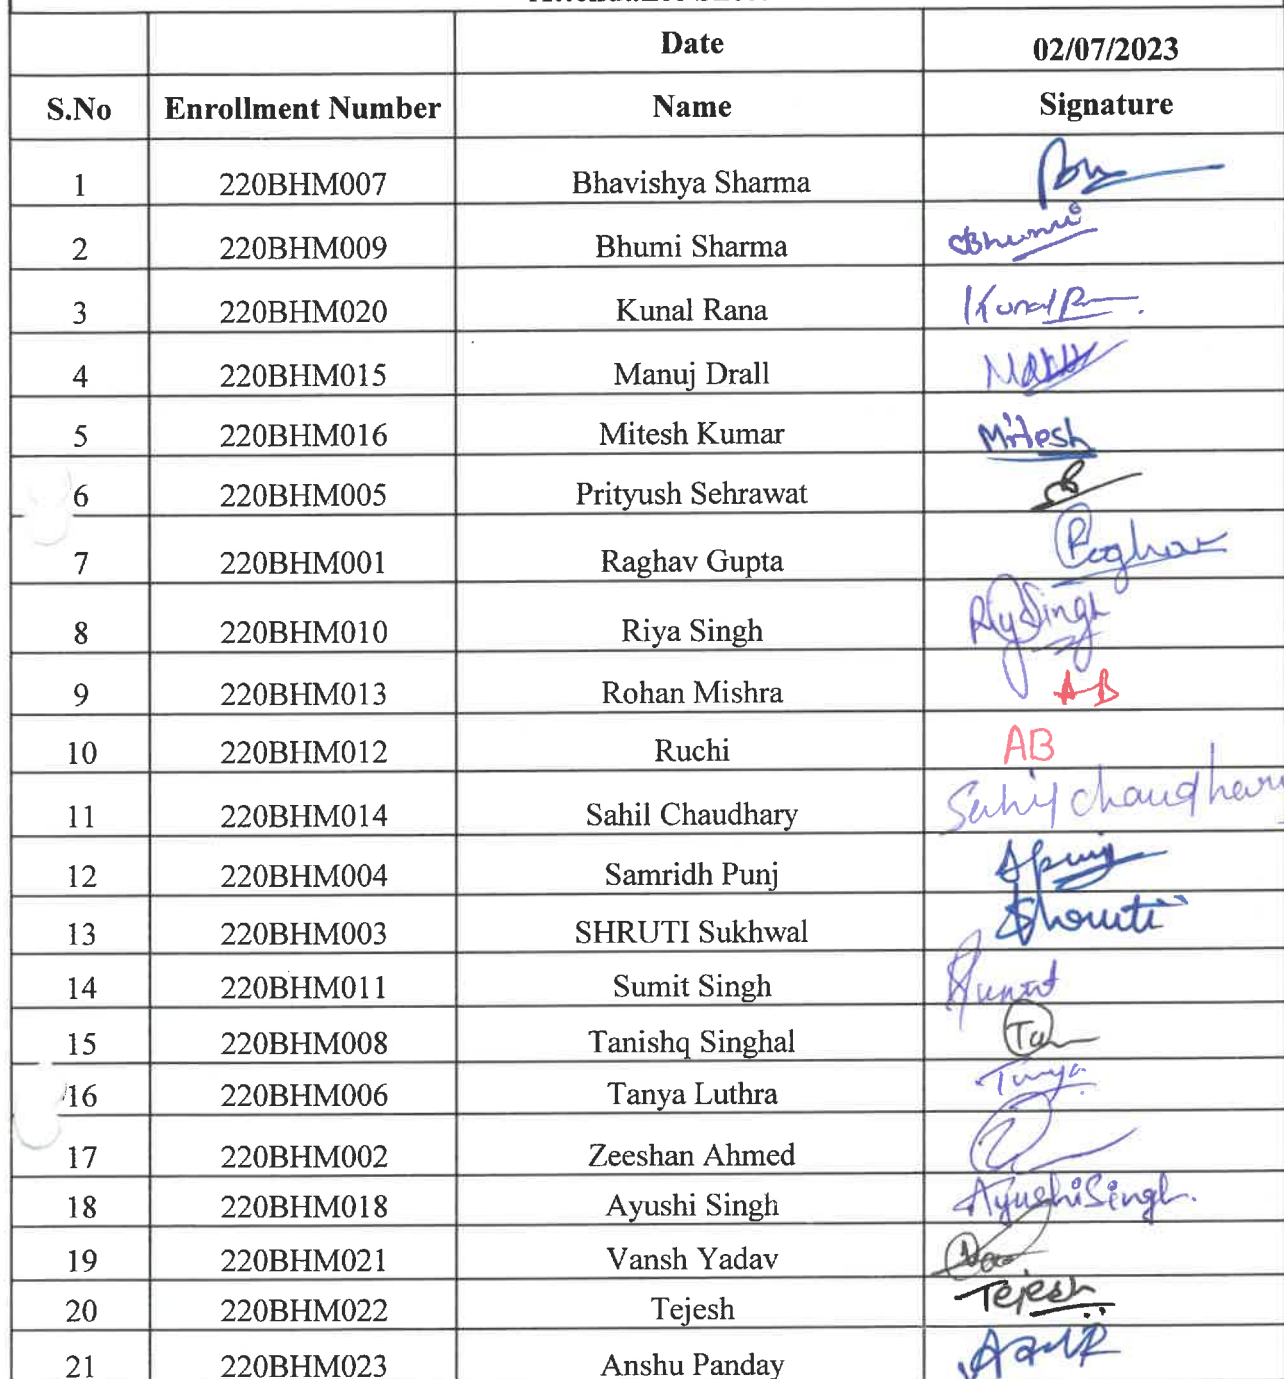 Date 02/07/2023
S.No Enrollment Number Name Signature
1 220BHM007 Bhavishya Sharma
2 220BHM009 Bhumi Sharma Bhumi
3 220BHM020 Kunal Rana Kunal
4 220BHM015 Manuj Drall
5 220BHM016 Mitesh Kumar Mitesh
6 220BHM005 Prityush Sehrawat
7 220BHM001 Raghav Gupta Raghav
8 220BHM010 Riya Singh Riya Singh
9 220BHM013 Rohan Mishra AB
10 220BHM012 Ruchi AB
11 220BHM014 Sahil Chaudhary Sahil Chaudhary
12 220BHM004 Samridh Punj
13 220BHM003 SHRUTI Sukhwal Shruti
14 220BHM011 Sumit Singh Sumit
15 220BHM008 Tanishq Singhal
16 220BHM006 Tanya Luthra Tanya
17 220BHM002 Zeeshan Ahmed
18 220BHM018 Ayushi Singh Ayushi Singh.
19 220BHM021 Vansh Yadav
20 220BHM022 Tejesh Tejesh
21 220BHM023 Anshu Panday